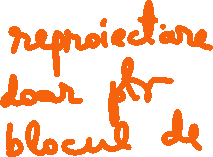 reproiectare
doar ptr
blocul de